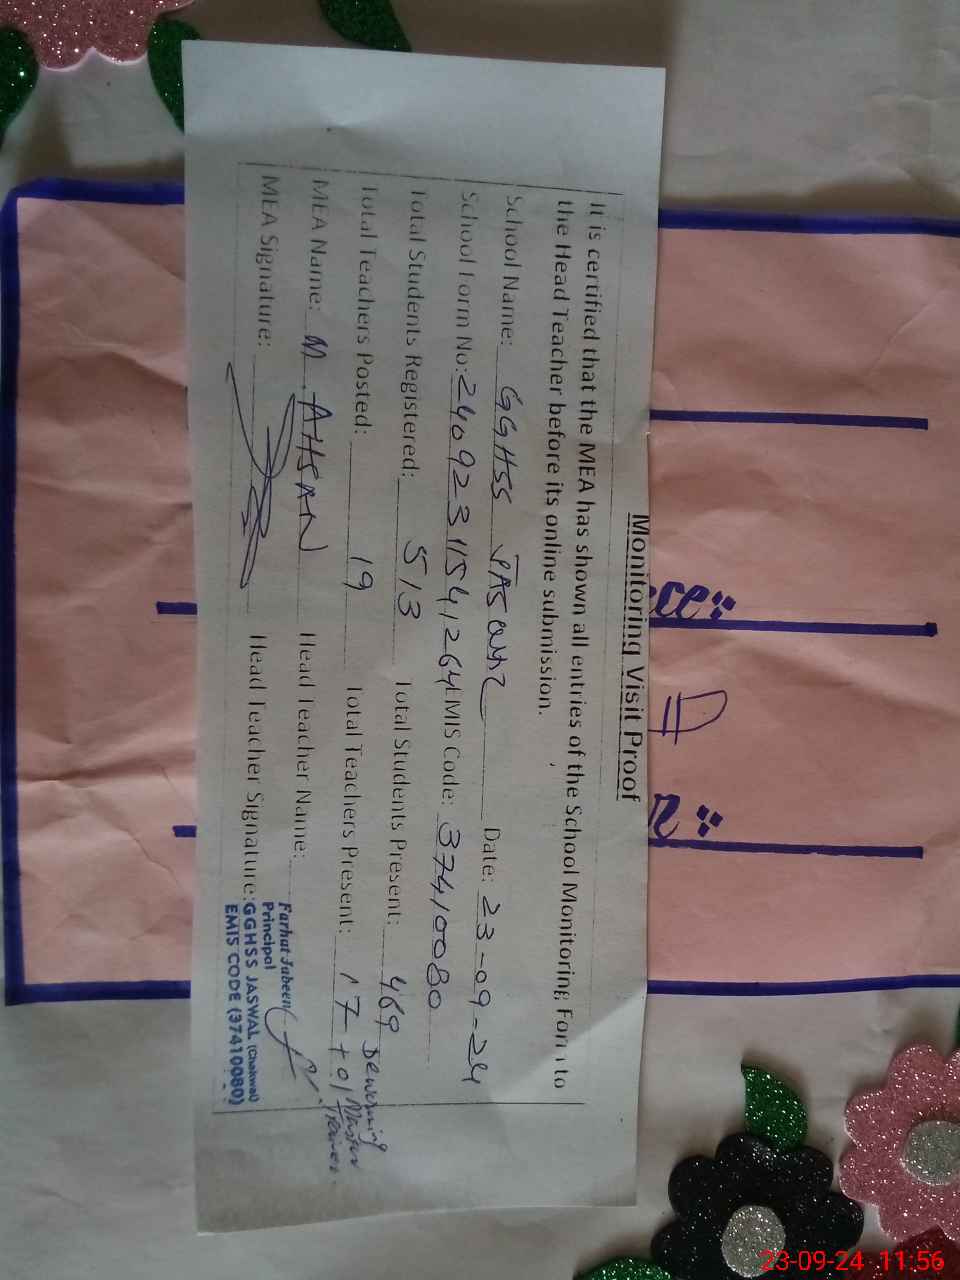 Monitoring Visit Proof
It is certified that the MEA has shown all entries of the School Monitoring Form to
the Head Teacher before its online submission.
School Name: GGHSS JASWAL Date: 23-09-24
School Form No: 24092311541264 EMIS Code: 37410080
Total Students Registered: 513 Total Students Present: 469
Total Teachers Posted: 19 Total Teachers Present: 17 + 01 Deworming
Master
Trainer
MEA Name: M. AHSAN Head Teacher Name:
MEA Signature: Head Teacher Signature:
Farhat Jabeen
Principal
GGHSS JASWAL (Chakwal)
EMIS CODE (37410080)
23-09-24 11:56